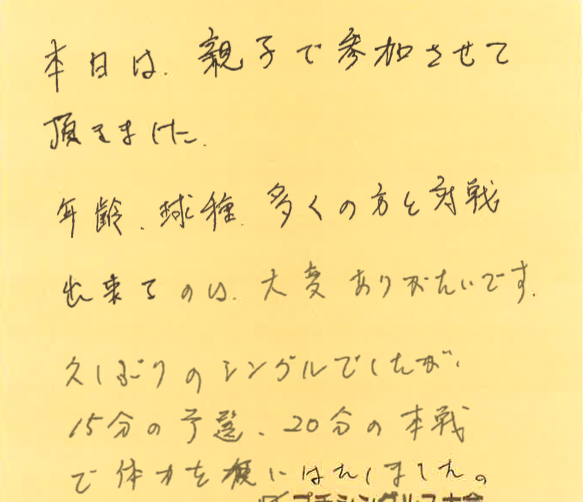 本日は、親子で参加させて
頂きました。
年齢、球種、多くの方と対戦
出来るのは、大変ありがたいです。
久しぶりのシングルでしたが、
15分の予選、20分の本戦
で体力を使いはたしました。
プチシングルス大会